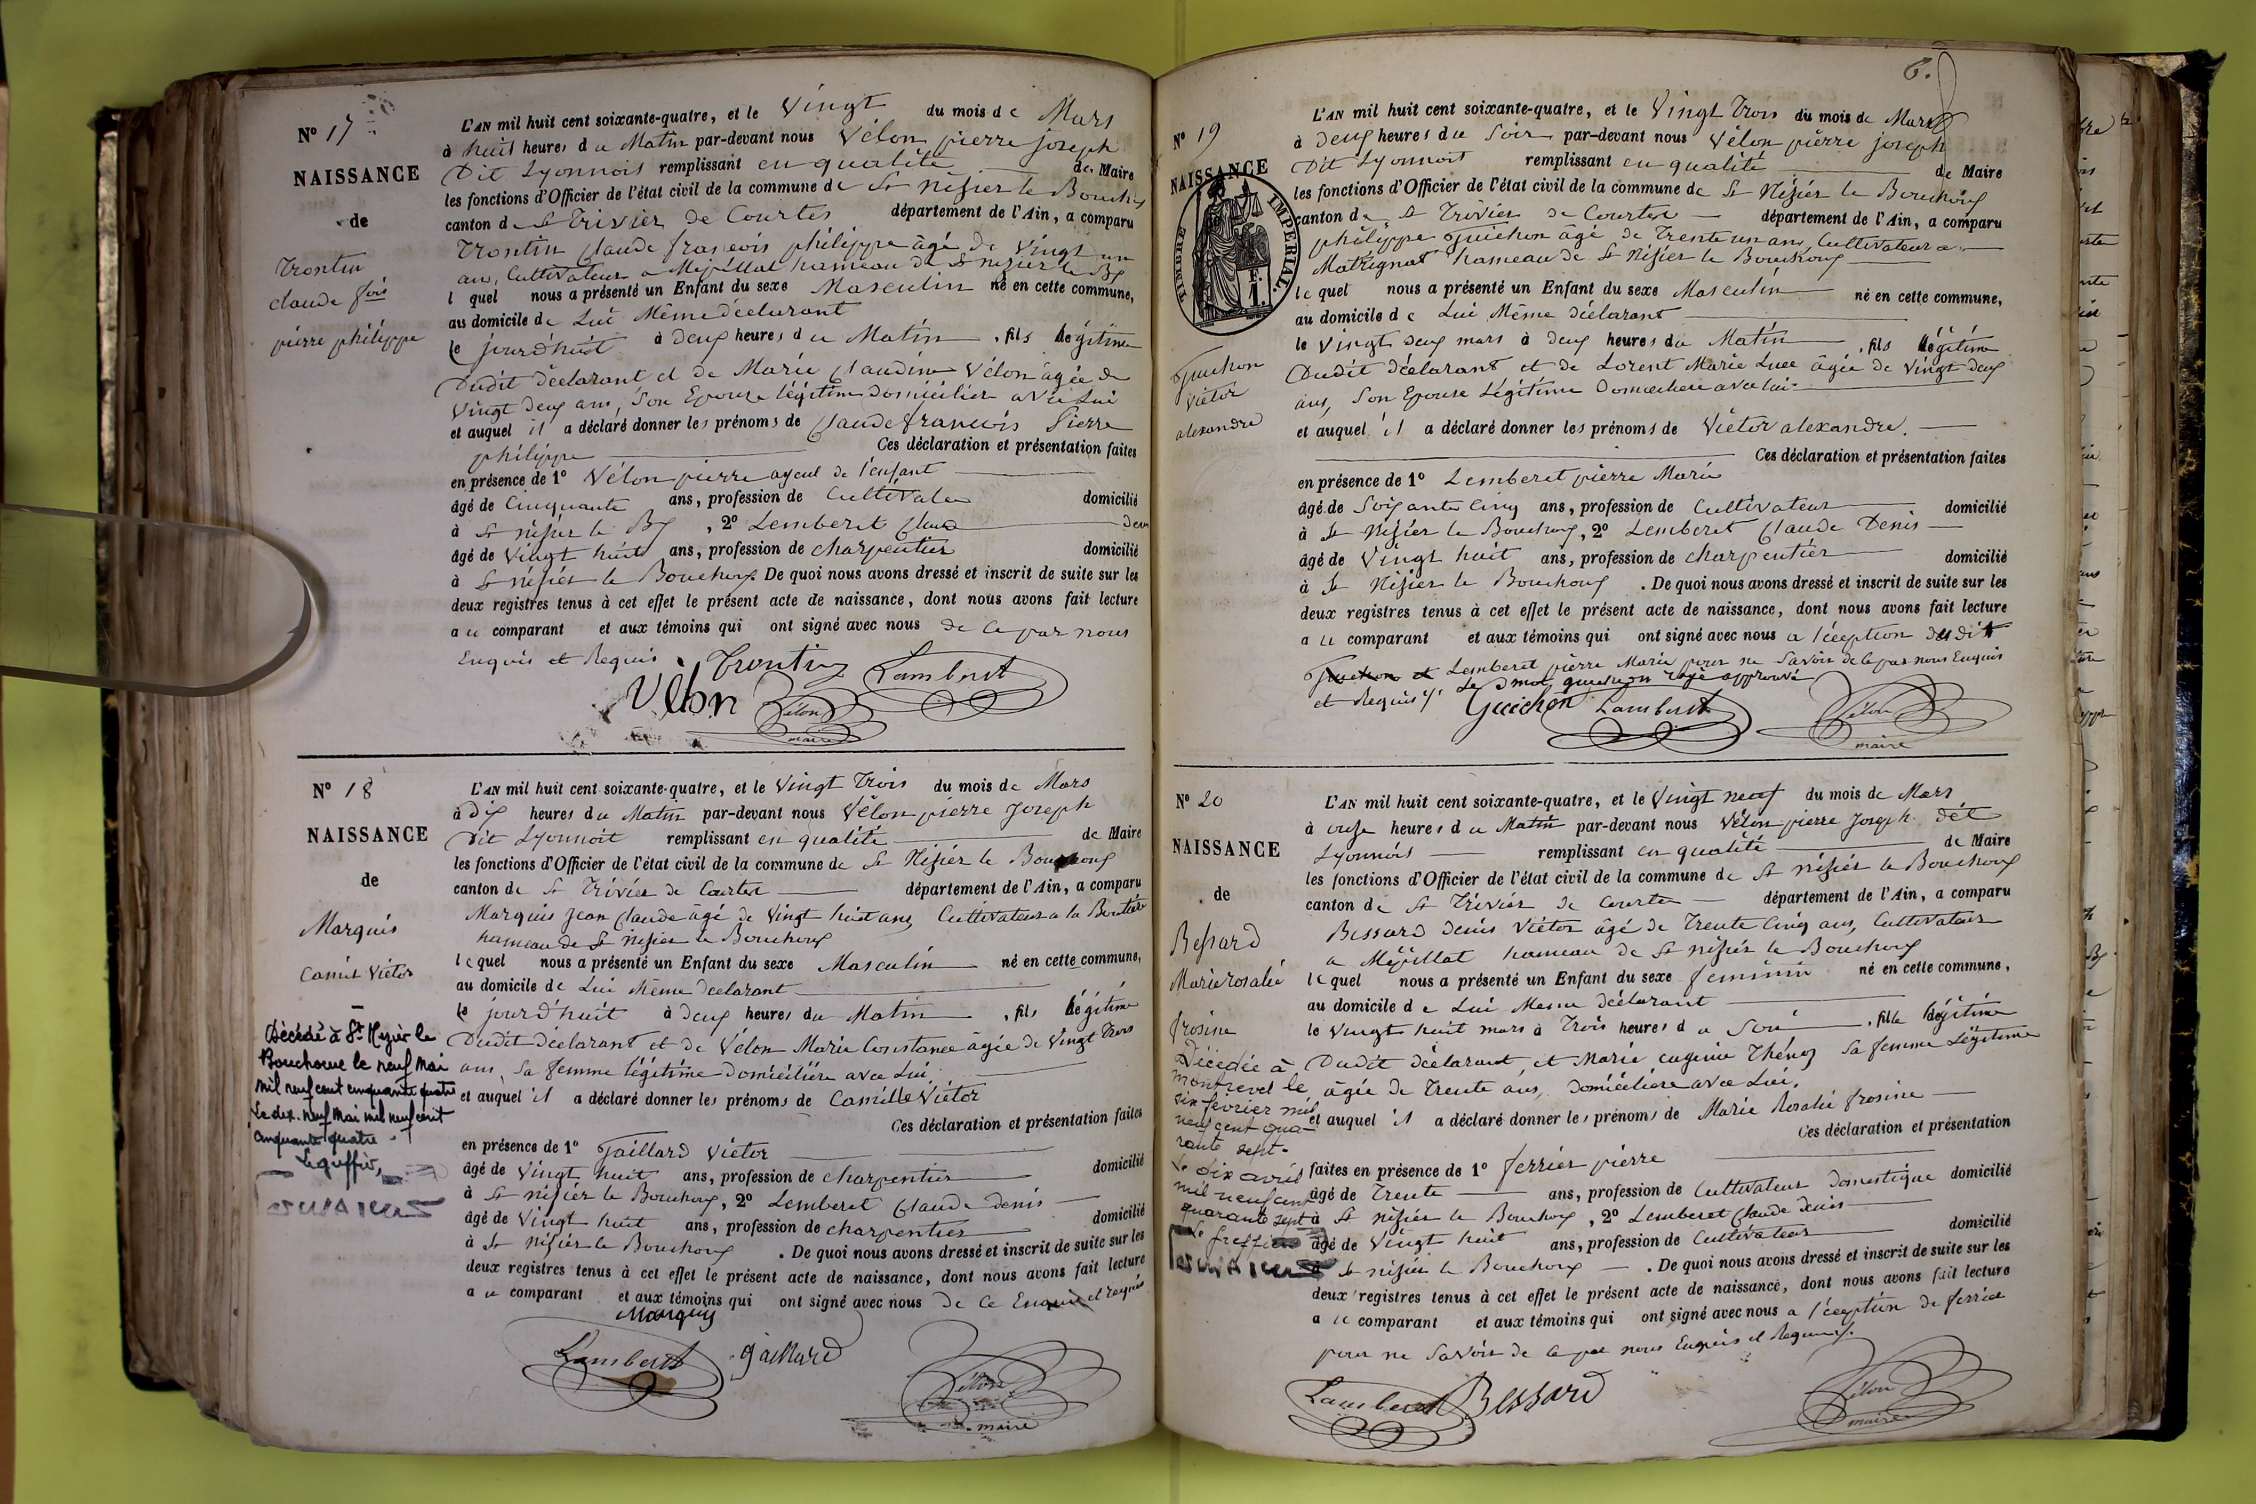 N° 17
NAISSANCE
de
Trontin
claude fois
pierre philippe
L'AN mil huit cent soixante-quatre, et le Vingt du mois de Mars
à huit heures du Matin par-devant nous Vélon pierre joseph
Dit Lyonnois remplissant en qualité de Maire
les fonctions d'Officier de l'état civil de la commune de St Nizier le Bouchoux
canton de St Trivier de Courtes département de l'Ain, a comparu
Trontin Claude francois philippe âgé de Vingt un
ans, Cultivateur a Mépillat hameau de St nizier le Bx
lequel nous a présenté un Enfant du sexe Masculin né en cette commune,
au domicile de Lui Même déclarant
le jourd'huit à deux heures du Matin, fils légitime
Dudit déclarant et de Marie Claudine Vélon âgée de
Vingt deux ans, Son Epouse légitime domicilier avec Lui
et auquel il a déclaré donner les prénoms de Claude francois Pierre
philippe Ces déclaration et présentation faites
en présence de 1° Vélon pierre ayeul de l'enfant
âgé de Cinquante ans, profession de Cultivateur domicilié
à St nizier le Bx, 2° Lemberet Claude den
âgé de Vingt huit ans, profession de charpentier domicilié
à St nizier le Bouchoux. De quoi nous avons dressé et inscrit de suite sur les
deux registres tenus à cet effet le présent acte de naissance, dont nous avons fait lecture
a ce comparant et aux témoins qui ont signé avec nous de ce par nous
Enquis et Requis. Trontin Lamberet
Vélon Vélon
maire
N° 18
NAISSANCE
de
Marquis
Camil Victor
Décédé à St Nizier le
Bouchoux le neuf Mai
mil neuf cent cinquante quatre
Le dix-neuf Mai mil neuf cent
cinquante quatre
Le greffier,
L'AN mil huit cent soixante-quatre, et le Vingt Trois du mois de Mars
à dix heures du Matin par-devant nous Vélon pierre Joseph
Dit Lyonnoit remplissant en qualité de Maire
les fonctions d'Officier de l'état civil de la commune de St Nizier le Bouchoux
canton de St Trivier de Courtes département de l'Ain, a comparu
Marquis Jean Claude âgé de Vingt huit ans, Cultivateur a la
hameau de St nizier le Bouchoux
lequel nous a présenté un Enfant du sexe Masculin né en cette commune,
au domicile de Lui Même déclarant
le jourd'huit à deux heures du Matin, fils légitime
Dudit déclarant et de Vélon Marie Constance âgée de Vingt Trois
ans, Sa femme légitime domicilière avec Lui
et auquel il a déclaré donner les prénoms de Camille Victor
Ces déclaration et présentation faites
en présence de 1° Gaillard Victor
âgé de Vingt huit ans, profession de charpentier domicilié
à St nizier le Bouchoux, 2° Lemberet Claude denis
âgé de Vingt huit ans, profession de charpentier domicilié
à St Nizier le Bouchoux. De quoi nous avons dressé et inscrit de suite sur les
deux registres tenus à cet effet le présent acte de naissance, dont nous avons fait lecture
a ce comparant et aux témoins qui ont signé avec nous de ce Enquis et requis
Marquis
Lamberet gaillard Vélon
maire
6.
N° 19
NAISSANCE
TIMBRE IMPERIAL
F.
1.
Guichon
Victor
alexandre
L'AN mil huit cent soixante-quatre, et le Vingt Trois du mois de Mars
à deux heures du Soir par-devant nous Vélon pierre joseph
Dit Lyonnoit remplissant en qualité de Maire
les fonctions d'Officier de l'état civil de la commune de St Nizier le Bouchoux
canton de St Trivier de Courtes département de l'Ain, a comparu
philippe Guichon âgé de Trente un ans, Cultivateur a
Matrignat hameau de St Nizier le Bouchoux
lequel nous a présenté un Enfant du sexe Masculin né en cette commune,
au domicile de Lui Même déclarant
le Vingt deux mars à deux heures du Matin, fils légitime
Dudit déclarant et de Lorent Marie Luce âgée de Vingt deux
ans, Son Epouse Légitime Domicilière avec lui
et auquel il a déclaré donner les prénoms de Victor alexandre.
Ces déclaration et présentation faites
en présence de 1° Lemberet pierre Marie
âgé de Soixante Cinq ans, profession de Cultivateur domicilié
à St Nizier le Bouchoux, 2° Lemberet Claude Denis
âgé de Vingt huit ans, profession de charpentier domicilié
à St Nizier le Bouchoux. De quoi nous avons dressé et inscrit de suite sur les
deux registres tenus à cet effet le présent acte de naissance, dont nous avons fait lecture
a ce comparant et aux témoins qui ont signé avec nous a l'éception du dit
Guichon et Lemberet pierre Marie pour ne Savoir de ce par nous Enquis
et Requis Le mot guichon rayé approuvé
Guichon Lamberet Vélon
maire
N° 20
NAISSANCE
de
Bessard
Marie rosalie
frosine
Décédée à
montrevel le
six février mil
neuf cent qua-
rante sept.
Le dix avril
mil neuf cent
quarante sept
Le greffier
L'AN mil huit cent soixante-quatre, et le Vingt neuf du mois de Mars
à onze heures du Matin par-devant nous Vélon pierre Joseph dét
Lyonnois remplissant en qualité de Maire
les fonctions d'Officier de l'état civil de la commune de St nizier le Bouchoux
canton de St Trivier de Courtes département de l'Ain, a comparu
Bessard denis Victor âgé de Trente Cinq ans, Cultivateur
a Mépillat hameau de St nizier le Bouchoux
lequel nous a présenté un Enfant du sexe feminin né en cette commune,
au domicile de Lui Meme déclarant
le Vingt huit mars à Trois heures du Soir, fille légitime
Dudit déclarant et Marie eugenie Thénoz Sa femme Légitime
âgée de Trente ans, domicilière avec Lui.
et auquel il a déclaré donner les prénoms de Marie Rosalie frosine
Ces déclaration et présentation
faites en présence de 1° ferrier pierre
âgé de Trente ans, profession de Cultivateur domestique domicilié
à St nizier le Bouchoux, 2° Lemberet Claude Denis
âgé de Vingt huit ans, profession de Cultivateur domicilié
à St nizier le Bouchoux. De quoi nous avons dressé et inscrit de suite sur les
deux registres tenus à cet effet le présent acte de naissance, dont nous avons fait lecture
a ce comparant et aux témoins qui ont signé avec nous a l'éception de ferrier
pour ne Savoir de ce par nous Enquis et Requis.
Lamberet Bessard Vélon
maire